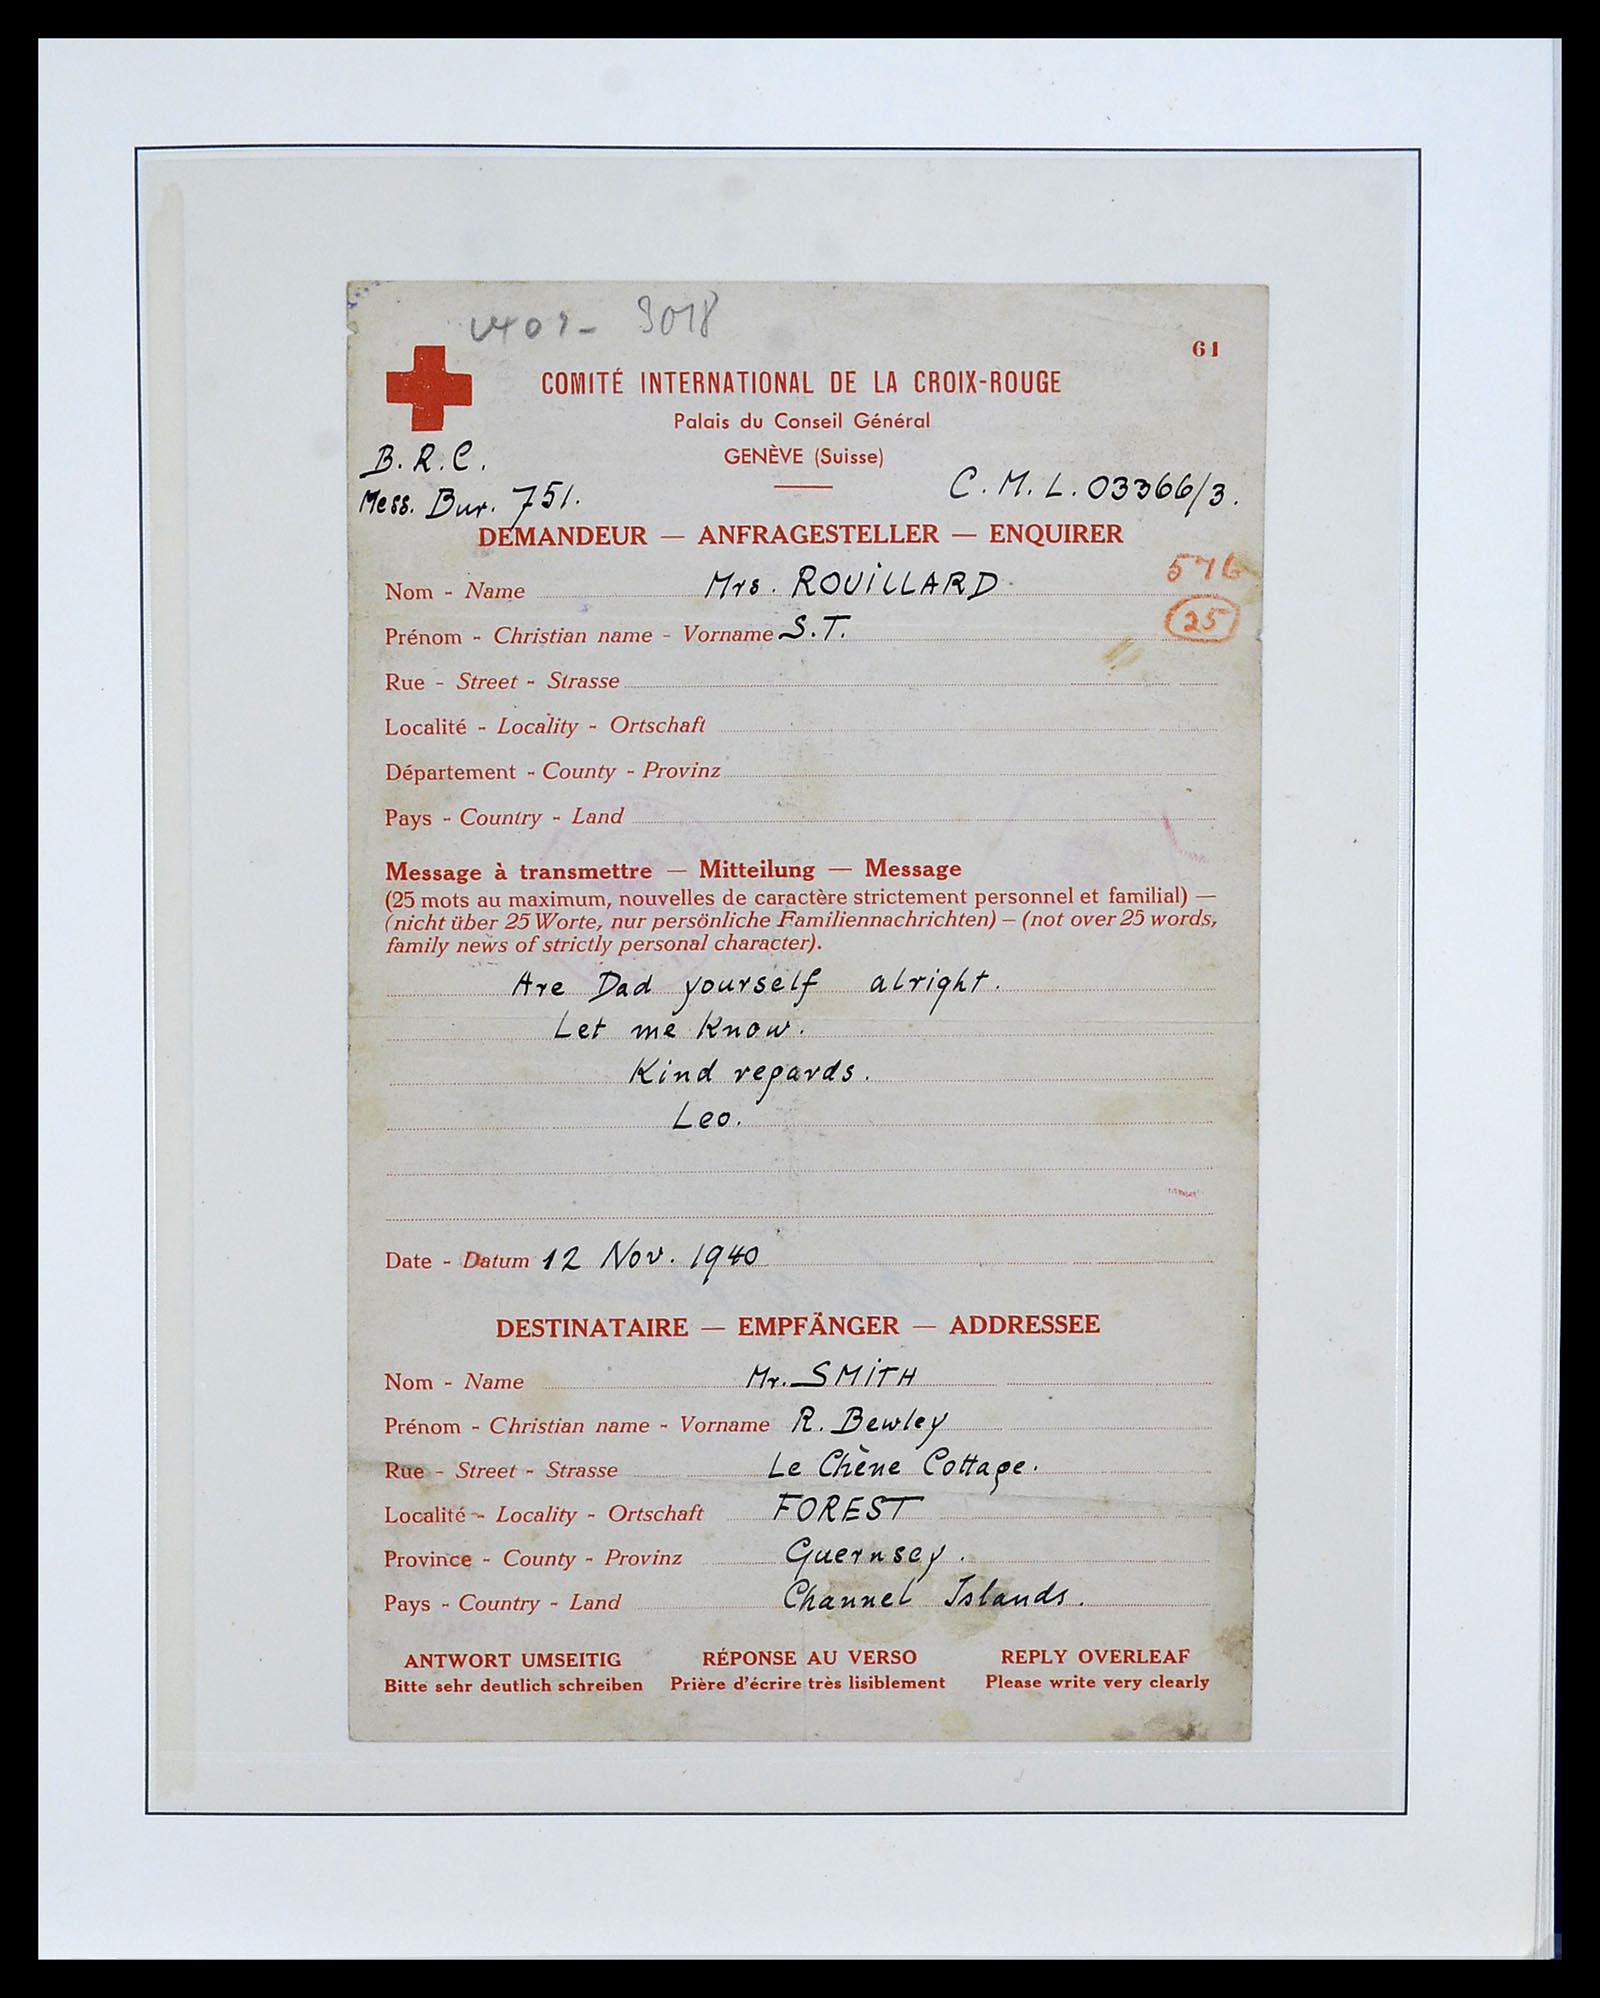 3018
61
COMITÉ INTERNATIONAL DE LA CROIX-ROUGE
Palais du Conseil Général
GENÈVE (Suisse)
B. R. C.
Mess. Bur. 751.
C. M. L. 03366/3.
DEMANDEUR — ANFRAGESTELLER — ENQUIRER
576
Nom - Name Mrs. ROUILLARD
Prénom - Christian name - Vorname S. T.
25
Rue - Street - Strasse
Localité - Locality - Ortschaft
Département - County - Provinz
Pays - Country - Land
Message à transmettre — Mitteilung — Message
(25 mots au maximum, nouvelles de caractère strictement personnel et familial) —
(nicht über 25 Worte, nur persönliche Familiennachrichten) – (not over 25 words,
family news of strictly personal character).
Are Dad yourself alright.
Let me know.
Kind regards.
Leo.
Date - Datum 12 Nov. 1940
DESTINATAIRE — EMPFÄNGER — ADDRESSEE
Nom - Name Mr. SMITH
Prénom - Christian name - Vorname R. Bewley
Rue - Street - Strasse Le Chène Cottage.
Localité - Locality - Ortschaft FOREST
Province - County - Provinz Guernsey.
Pays - Country - Land Channel Islands.
ANTWORT UMSEITIG RÉPONSE AU VERSO REPLY OVERLEAF
Bitte sehr deutlich schreiben Prière d'écrire très lisiblement Please write very clearly